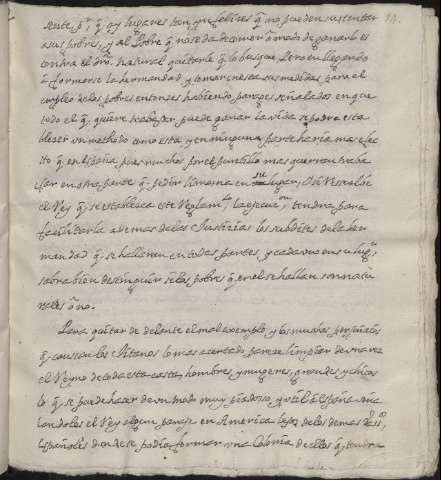 14.
sente, pr. q. ay lugares tan infelices q. no pueden sustentar
a sus pobres, y al Pobre q. no se da de comer o modo de ganarlo es
contra el dro. natural quitarle q. lo busque, Pero en llegando
à formarse la hermandad, y tomar en esta sus medidas para el
empleo de los pobres entonses habiendo parajes señalados en que
todo el q. quiere trabajar puede ganar la vida se podra esta
blecer un methodo como esta, y en ninguna parte haria mas efec
to q. en España pues muchos por el puntillo mas querran traba
jar en otra parte q. pedir limosna en su lugar,
el Rey q. se establesca este Reglamto. la execuon. tendra para
facilitarla ademas de las Justicias los subditos de la her
mandad q. se hallaren en todas partes, y cada uno en su lugr.
sabra bien destinguir si los pobres q. en el se hallan son natu
rales ô no.
Para quitar de delante el mal exemplo, y los muchos perjuicios
q. causan los Jitanos lo mas acertado parese limpiar de una vez
el Reyno de toda esta casta, hombres, y mugeres, grandes y chicos
lo q. se puede hazer de un modo muy piadoso, y util à España
el Rey algun paraje en America lejos de los demas
Españoles donde se podia formar una Colonia de ellos q. tendra